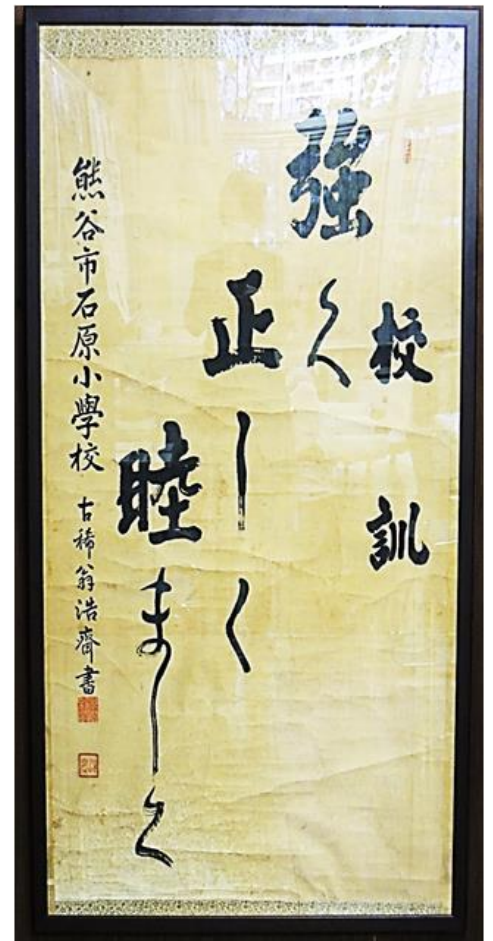 校訓
強く
正しく
睦ましく
熊谷市石原小學校 古稀翁浩齋書